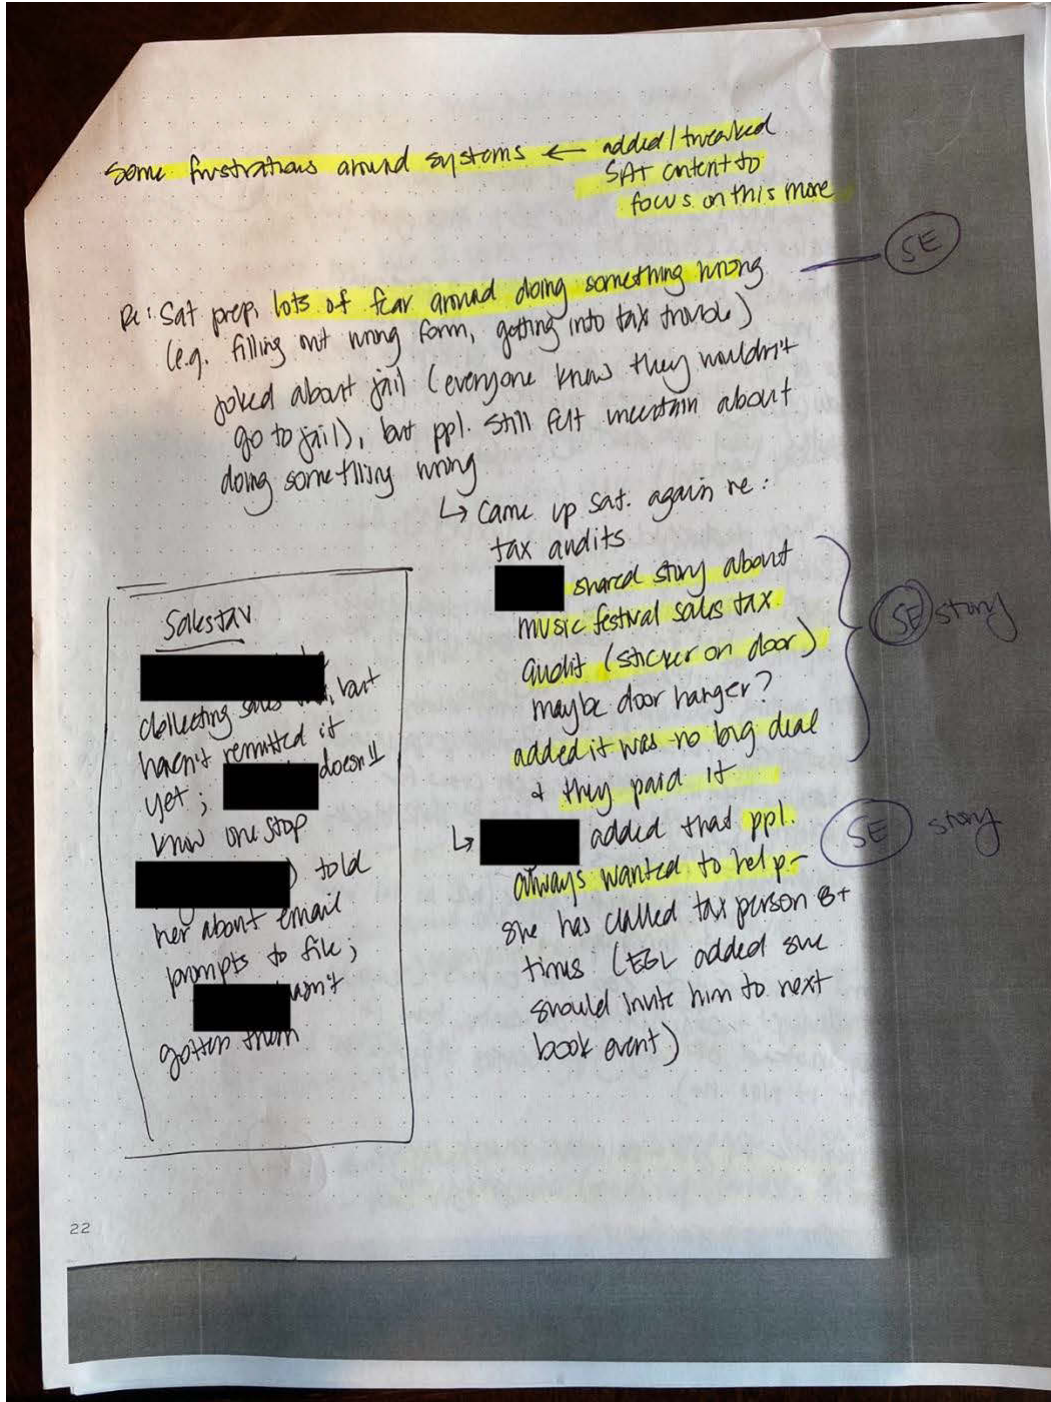 some frustrations around systems ← added/tweaked
SAT content to
focus on this more
SE
Re: Sat prep, lots of fear around doing something wrong
(e.g. filling out wrong form, getting into tax trouble)
joked about jail (everyone knew they wouldn't
go to jail), but ppl. still felt uncertain about
doing something wrong
↳ Came up sat. again re:
tax audits
shared story about
music festival sales tax
audit (sticker on door)
maybe door hanger?
added it was no big deal
+ they paid it
SE story
↳ added that ppl.
always wanted to help-
she has called tax person 8+
times (EGL added she
should invite him to next
book event)
SE story
Sales tax
but
collecting sales
haven't remitted it
yet; doesn't
know one stop
) told
her about email
prompts to file;
hasn't
gotten them
22